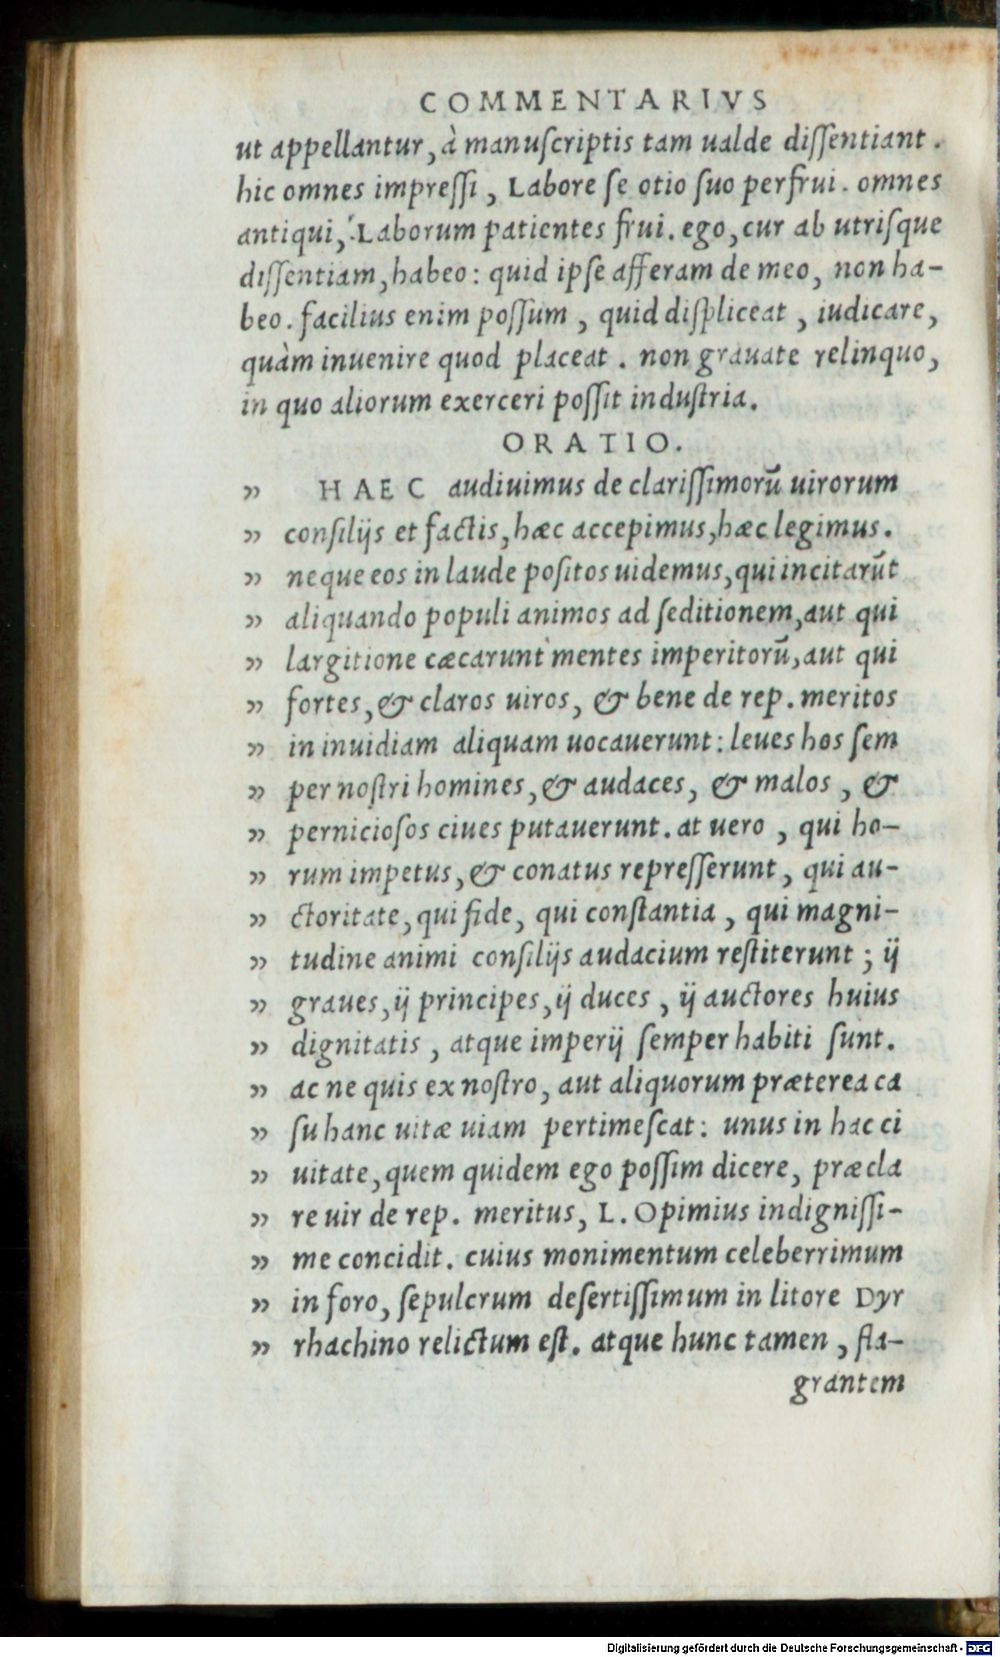 COMMENTARIVS
ut appellantur, à manuſcriptis tam ualde diſſentiant.
hic omnes impreſſi, Labore ſe otio ſuo perfrui. omnes
antiqui, Laborum patientes frui. ego, cur ab utriſque
diſſentiam, habeo: quid ipſe afferam de meo, non ha-
beo. facilius enim poſſum, quid diſpliceat, iudicare,
quàm inuenire quod placeat. non grauate relinquo,
in quo aliorum exerceri poſſit induſtria.
ORATIO.
” HAEC audiuimus de clariſſimorũ uirorum
” conſilijs et factis, hæc accepimus, hæc legimus.
” neque eos in laude poſitos uidemus, qui incitarũt
” aliquando populi animos ad ſeditionem, aut qui
” largitione cæcarunt mentes imperitorũ, aut qui
” fortes, & claros uiros, & bene de rep. meritos
” in inuidiam aliquam uocauerunt: leues hos ſem
” per noſtri homines, & audaces, & malos, &
” pernicioſos ciues putauerunt. at uero, qui ho-
” rum impetus, & conatus repreſſerunt, qui au-
” ctoritate, qui fide, qui conſtantia, qui magni-
” tudine animi conſilijs audacium reſtiterunt; ij
” graues, ij principes, ij duces, ij auctores huius
” dignitatis, atque imperij ſemper habiti ſunt.
” ac ne quis ex noſtro, aut aliquorum præterea ca
” ſu hanc uitæ uiam pertimeſcat: unus in hac ci
” uitate, quem quidem ego poſſim dicere, præcla
” re uir de rep. meritus, L. Opimius indigniſſi-
” me concidit. cuius monimentum celeberrimum
” in foro, ſepulcrum deſertiſſimum in litore Dyr
” rhachino relictum eſt. atque hunc tamen, fla-
grantem
Digitalisierung gefördert durch die Deutsche Forschungsgemeinschaft - DFG